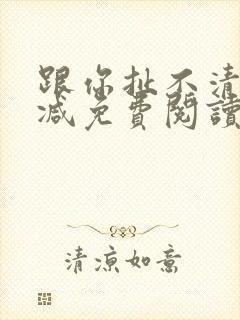 跟你扯不清
减免費閱讀
清凉如意